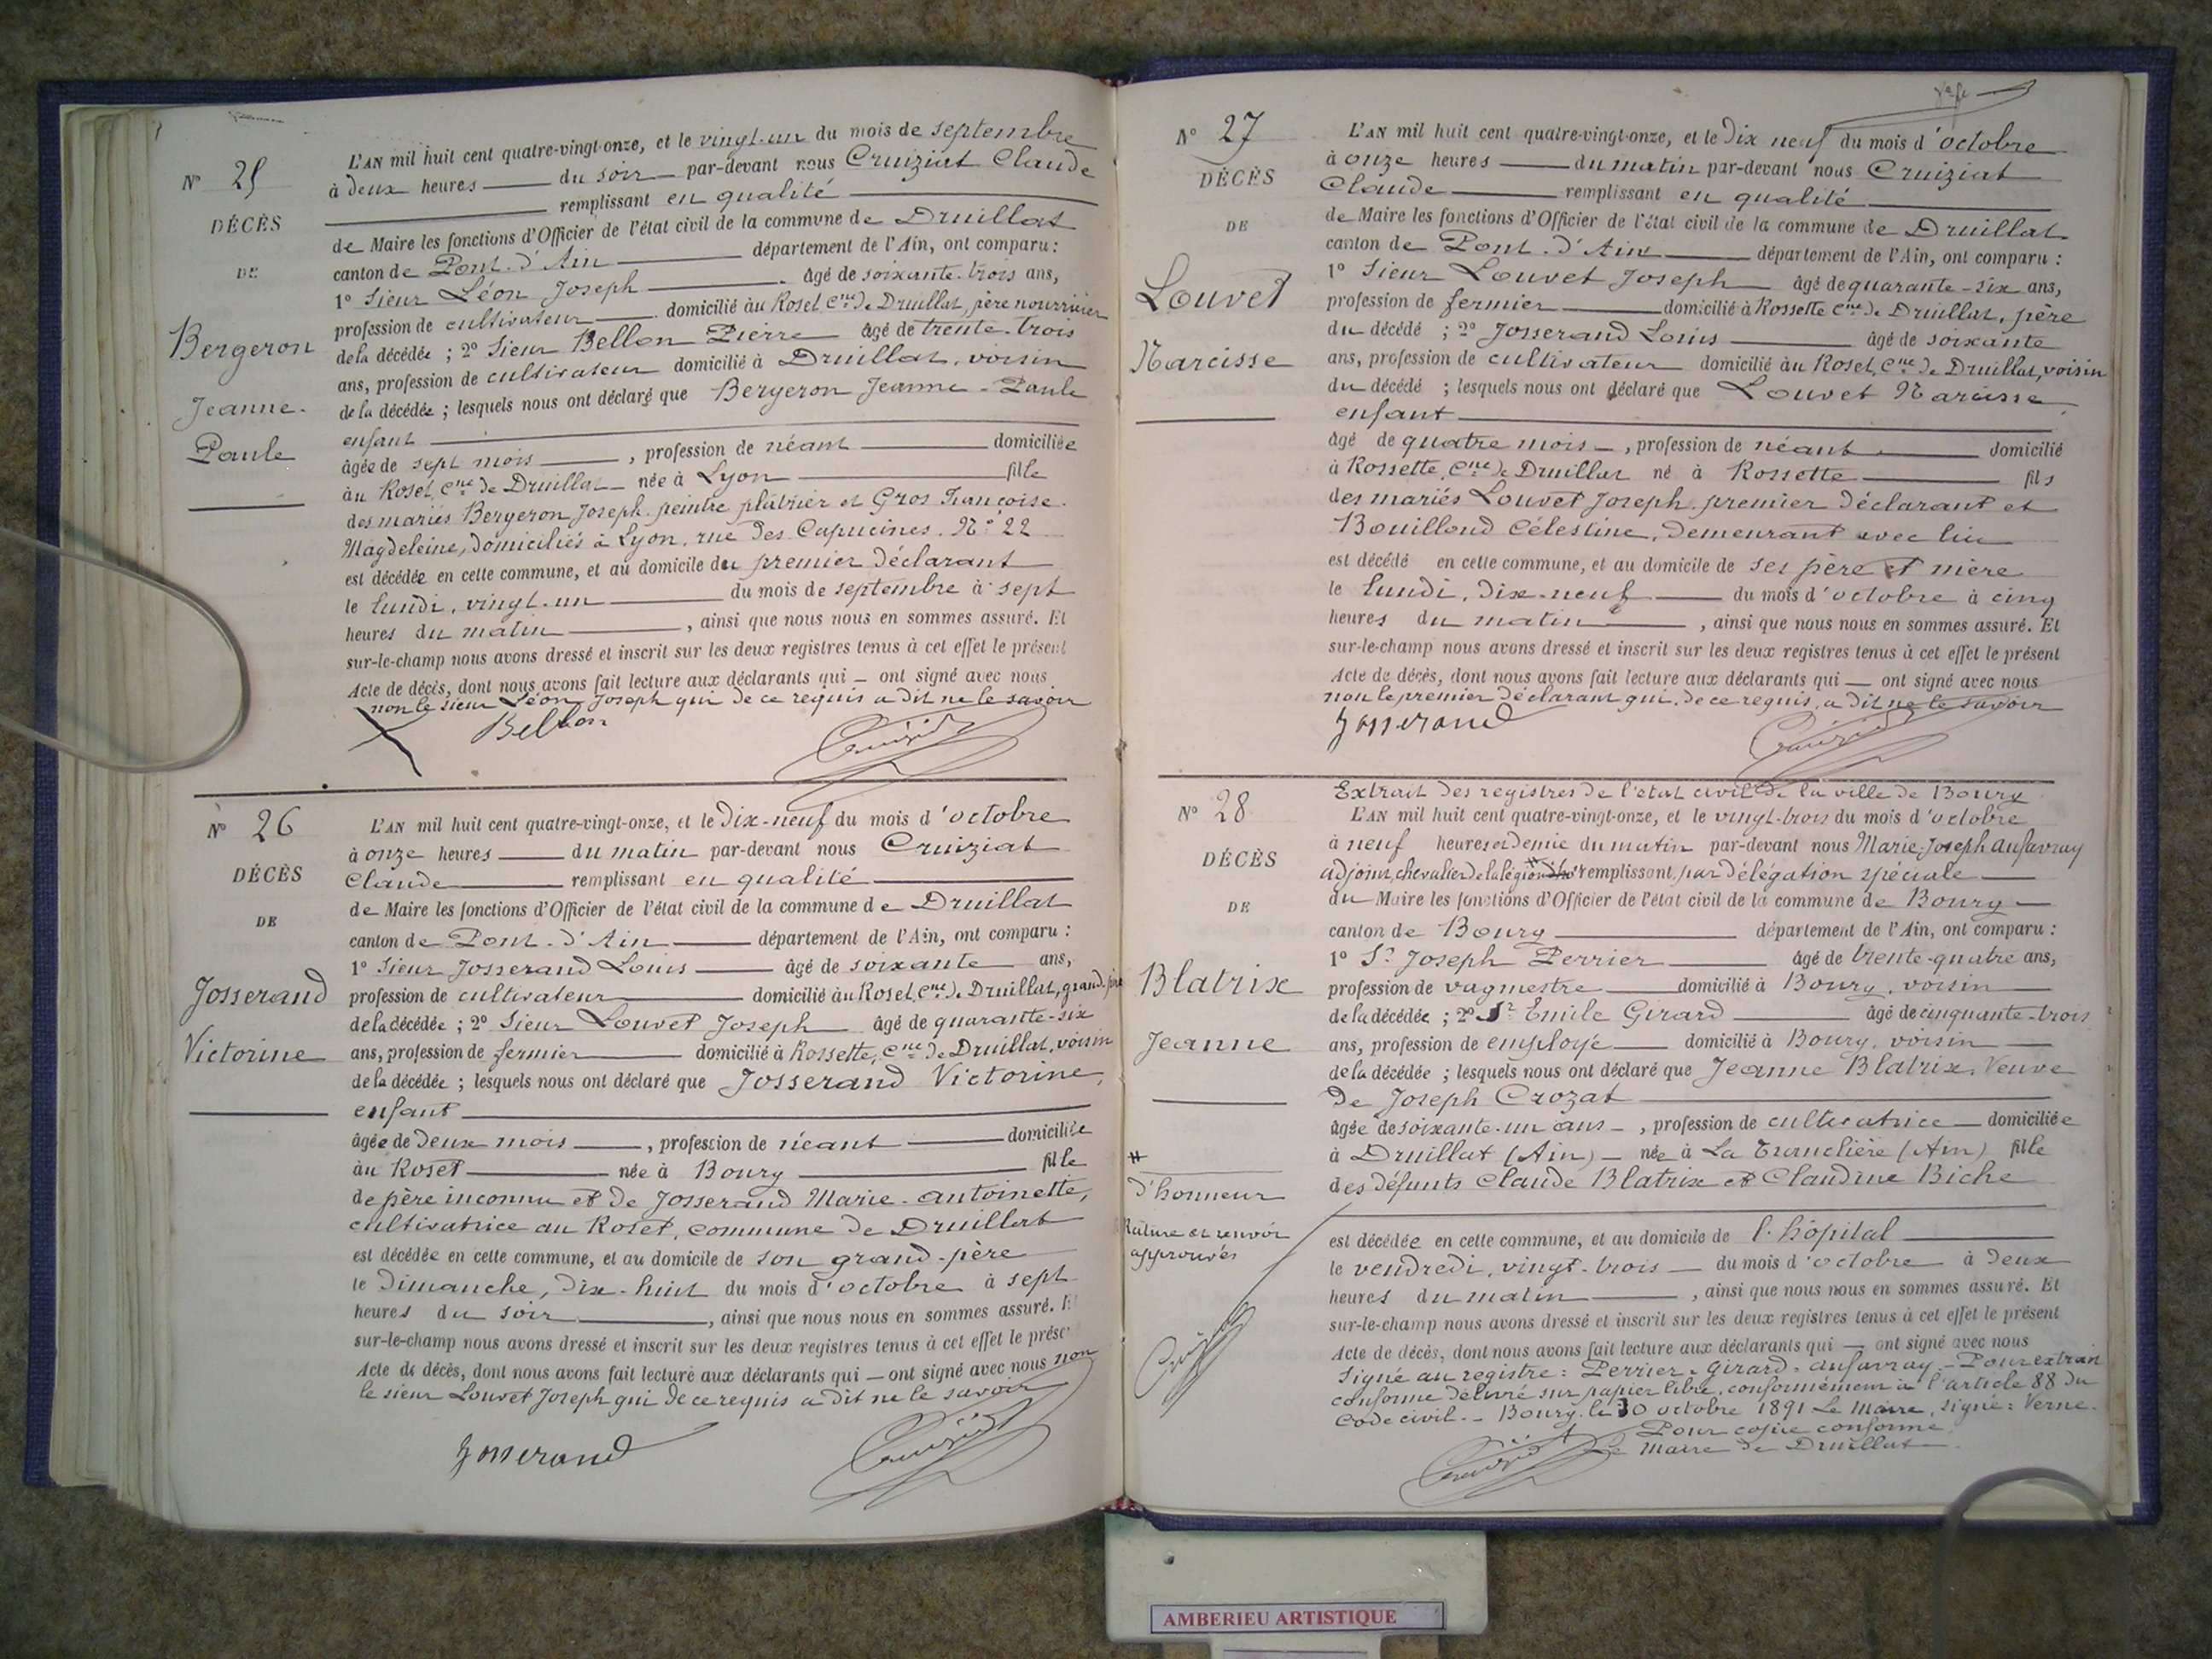 N° 25
DÉCÈS
DE
Bergeron
Jeanne-
Paule
L'AN mil huit cent quatre-vingt-onze, et le vingt-un du mois de septembre
à deux heures du soir par-devant nous Cruiziat Claude
remplissant en qualité
de Maire les fonctions d'Officier de l'état civil de la commune de Druillat
canton de Pont-d'Ain département de l'Ain, ont comparu :
1° Sieur Léon Joseph âgé de soixante-trois ans,
profession de cultivateur domicilié au Roset, Cne de Druillat, père nourricier
de la décédée ; 2° Sieur Bellon Pierre âgé de trente-trois
ans, profession de cultivateur domicilié à Druillat, voisin
de la décédée ; lesquels nous ont déclaré que Bergeron Jeanne-Paule
enfant
âgée de sept mois, profession de néant domiciliée
au Roset, Cne de Druillat née à Lyon fille
des mariés Bergeron Joseph, peintre plâtrier et Gros Françoise-
Magdeleine, domiciliés à Lyon, rue des Capucines, N° 22
est décédée en cette commune, et au domicile du premier déclarant
le lundi, vingt-un du mois de septembre à sept
heures du matin, ainsi que nous nous en sommes assuré. Et
sur-le-champ nous avons dressé et inscrit sur les deux registres tenus à cet effet le présent
Acte de décès, dont nous avons fait lecture aux déclarants qui — ont signé avec nous
non le sieur Léon Joseph qui de ce requis a dit ne le savoir
Bellon Cruiziat
N° 26
DÉCÈS
DE
Josserand
Victorine
L'AN mil huit cent quatre-vingt-onze, et le dix-neuf du mois d'octobre
à onze heures du matin par-devant nous Cruiziat
Claude remplissant en qualité
de Maire les fonctions d'Officier de l'état civil de la commune de Druillat
canton de Pont-d'Ain département de l'Ain, ont comparu :
1° Sieur Josserand Louis âgé de soixante ans,
profession de cultivateur domicilié au Roset, Cne de Druillat, grand-père
de la décédée ; 2° Sieur Louvet Joseph âgé de quarante-six
ans, profession de fermier domicilié à Rossette, Cne de Druillat, voisin
de la décédée ; lesquels nous ont déclaré que Josserand Victorine,
enfant
âgée de deux mois, profession de néant domiciliée
au Roset née à Bourg fille
de père inconnu et de Josserand Marie-Antoinette,
cultivatrice au Roset, commune de Druillat
est décédée en cette commune, et au domicile de son grand-père
le dimanche, dix-huit du mois d'octobre à sept
heures du soir, ainsi que nous nous en sommes assuré. Et
sur-le-champ nous avons dressé et inscrit sur les deux registres tenus à cet effet le prése
Acte de décès, dont nous avons fait lecture aux déclarants qui — ont signé avec nous non
le sieur Louvet Joseph qui de ce requis a dit ne le savoir
Josserand Cruiziat
N° 27
DÉCÈS
DE
Louvet
Narcisse
L'AN mil huit cent quatre-vingt-onze, et le dix neuf du mois d'octobre
à onze heures du matin par-devant nous Cruiziat
Claude remplissant en qualité
de Maire les fonctions d'Officier de l'état civil de la commune de Druillat
canton de Pont-d'Ain département de l'Ain, ont comparu :
1° Sieur Louvet Joseph âgé de quarante-six ans,
profession de fermier domicilié à Rossette Cne de Druillat, père
du décédé ; 2° Josserand Louis âgé de soixante
ans, profession de cultivateur domicilié au Roset, Cne de Druillat, voisin
du décédé ; lesquels nous ont déclaré que Louvet Narcisse,
enfant
âgé de quatre mois, profession de néant domicilié
à Rossette, Cne de Druillat né à Rossette fils
des mariés Louvet Joseph, premier déclarant et
Bouilloud Célestine, demeurant avec lui
est décédé en cette commune, et au domicile de ses père et mère
le lundi, dix-neuf du mois d'octobre à cinq
heures du matin, ainsi que nous nous en sommes assuré. Et
sur-le-champ nous avons dressé et inscrit sur les deux registres tenus à cet effet le présent
Acte de décès, dont nous avons fait lecture aux déclarants qui — ont signé avec nous
non le premier déclarant qui, de ce requis, a dit ne le savoir
Josserand Cruiziat
N° 28
DÉCÈS
DE
Blatrix
Jeanne
#
d'honneur
Rature et renvoi
approuvés
Extrait des registres de l'état civil de la ville de Bourg
L'AN mil huit cent quatre-vingt-onze, et le vingt-trois du mois d'octobre
à neuf heures et demie du matin par-devant nous Marie-Joseph Aufavray
adjoint, chevalier de la légion # remplissant par délégation spéciale
du Maire les fonctions d'Officier de l'état civil de la commune de Bourg
canton de Bourg département de l'Ain, ont comparu :
1° Sr Joseph Perrier âgé de trente-quatre ans,
profession de vagmestre domicilié à Bourg, voisin
de la décédée ; 2° Sr Emile Girard âgé de cinquante-trois
ans, profession de employé domicilié à Bourg, voisin
de la décédée ; lesquels nous ont déclaré que Jeanne Blatrix, Veuve
de Joseph Crozat
âgée de soixante-un ans, profession de cultivatrice domiciliée
à Druillat (Ain) née à La Tranclière (Ain) fille
des défunts Claude Blatrix et Claudine Biche
est décédée en cette commune, et au domicile de l'hôpital
le vendredi, vingt-trois du mois d'octobre à deux
heures du matin, ainsi que nous nous en sommes assuré. Et
sur-le-champ nous avons dressé et inscrit sur les deux registres tenus à cet effet le présent
Acte de décès, dont nous avons fait lecture aux déclarants qui — ont signé avec nous
Signé au registre : Perrier, Girard, Aufavray. - Pour extrait
conforme délivré sur papier libre, conformément à l'article 88 du
Code civil. - Bourg, le 30 octobre 1891 Le Maire, signé : Verne.
Pour copie conforme,
Le Maire de Druillat
Cruiziat
AMBERIEU ARTISTIQUE